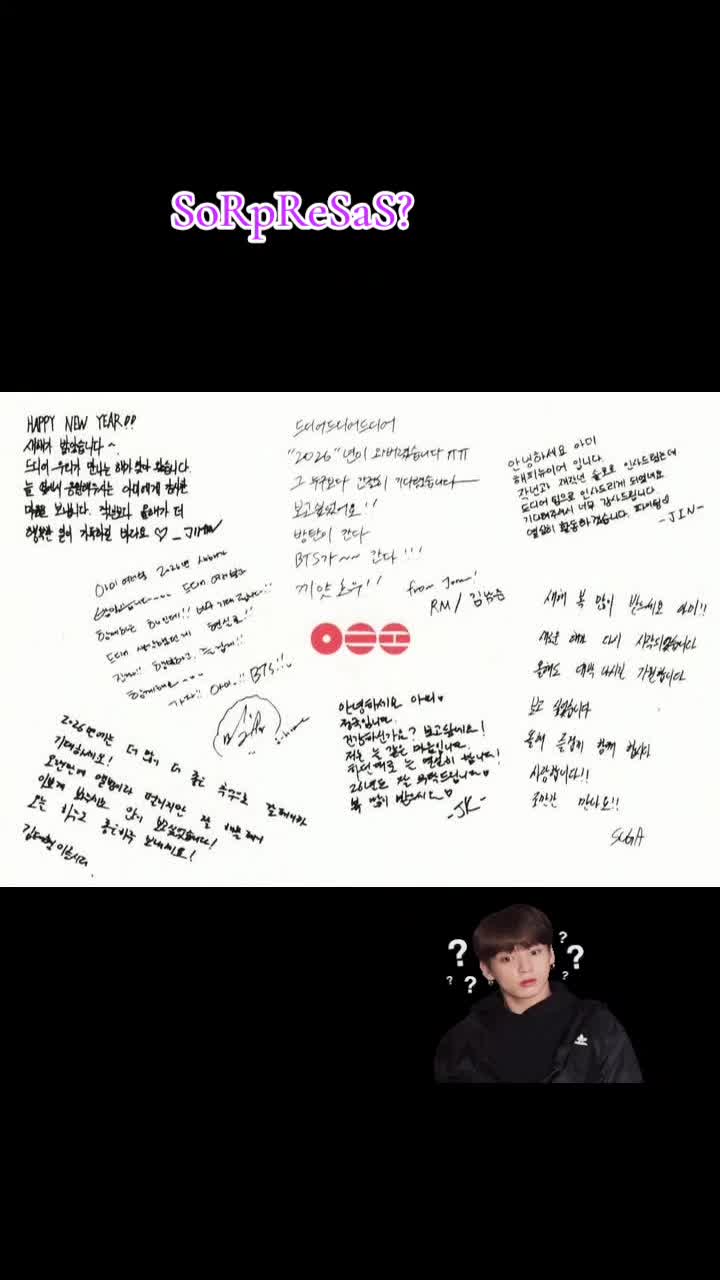 SoRpReSaS?
HAPPY NEW YEAR!!
새해가 밝았습니다~
드디어 우리가 만나는 해가 찾아 왔습니다.
늘 옆에서 응원해주시는 아미에게 감사한
마음을 보냅니다. 작년보다 올해가 더
행복한 일이 가득하길 바라요 ♡ _ JIMIN
드디어드디어드디어
"2026"년이 와버렸습니다 ㅠㅠ
그 누구보다 간절히 기다렸습니다
보고싶었어요!!
방탄이 간다
BTS가~~ 간다!!!
끼얏호우!!
from Joon!
RM / 김남준
안녕하세요 아미
해피뉴이어 입니다.
작년과 재작년 솔로로 인사드렸는데
드디어 팀으로 인사드리게 되었네요
기다려주셔서 너무 감사드립니다
열심히 활동하겠습니다. 파이팅♡
-JIN-
아미 여러분 2026년
드디어
함께하는
드디어
함께해요
가자!! 아미!! BTS!!
2026년에는 더 많이 더 좋은 추억으로
기대하세요!
오랜만에 앨범이라
이쁘게 봐주시요 많이 보고싶습니다!
오늘 하루도 좋은하루 보내세요!
김태형 이였습니다
.
안녕하세요 아미.
정국입니다.
건강하신가요? 보고싶네요!
저는 늘 같은 마음입니다.
하던대로 늘 열심히 합니다!
26년도 잘 부탁드립니다♡
복 많이 받으시요♡
-JK-
새해 복 많이 받으세요 아미!!
새로운 해가 다시 시작되었습니다
올해도 대박 나시길 기원합니다
보고 싶었습니다
올해 즐겁게 함께 합시다
사랑합니다!!
조만간 만나요!!
SUGA
? ? ? ? ? ?